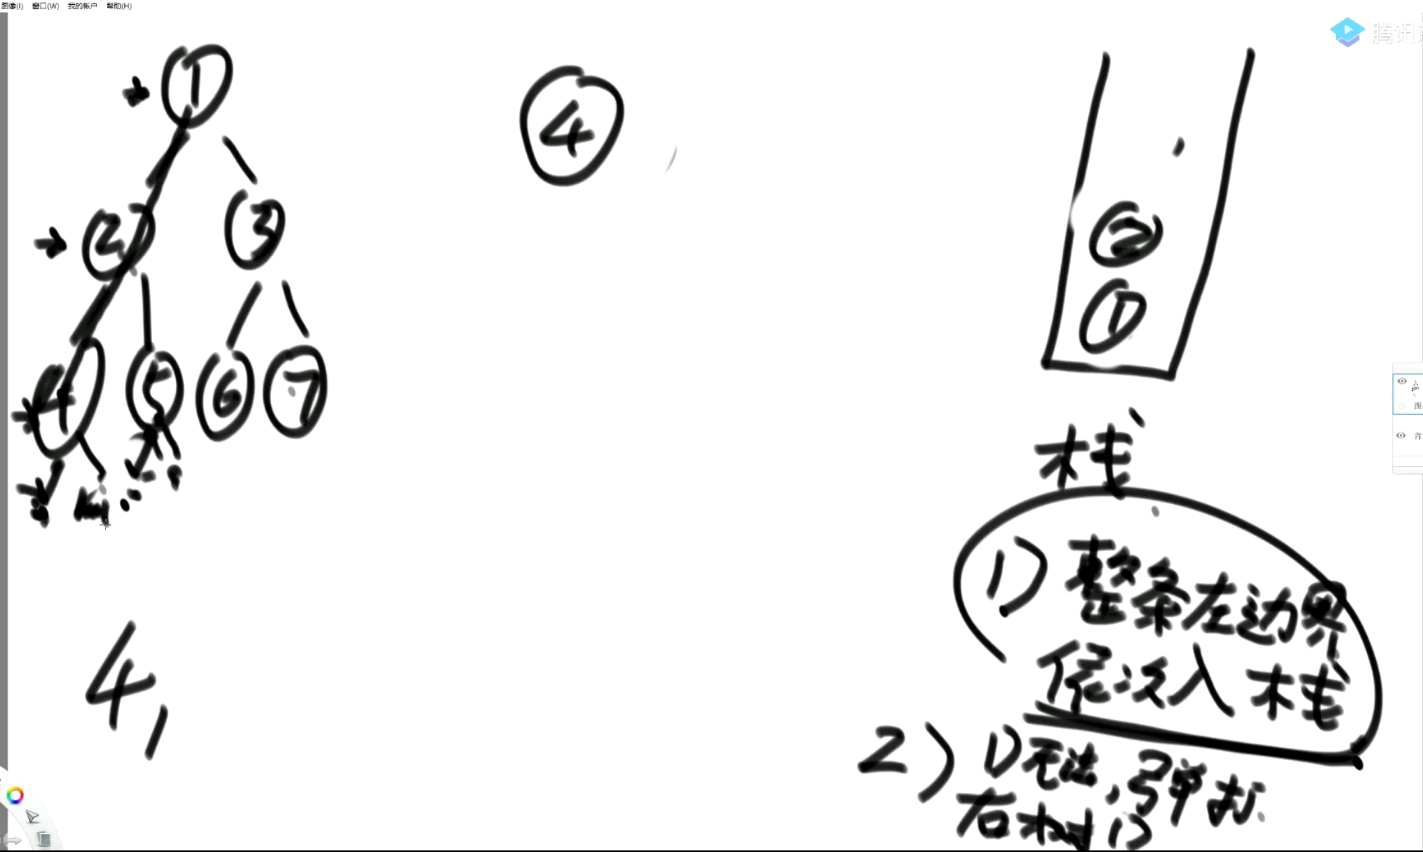 图像(I) 窗口(W) 我的帐户 帮助(H)
腾讯
1
2 3
4 5 6 7
4
2
1
栈
1) 整条左边界
依次入栈
2) 1)无法,弹打.
右树1)
4,
图